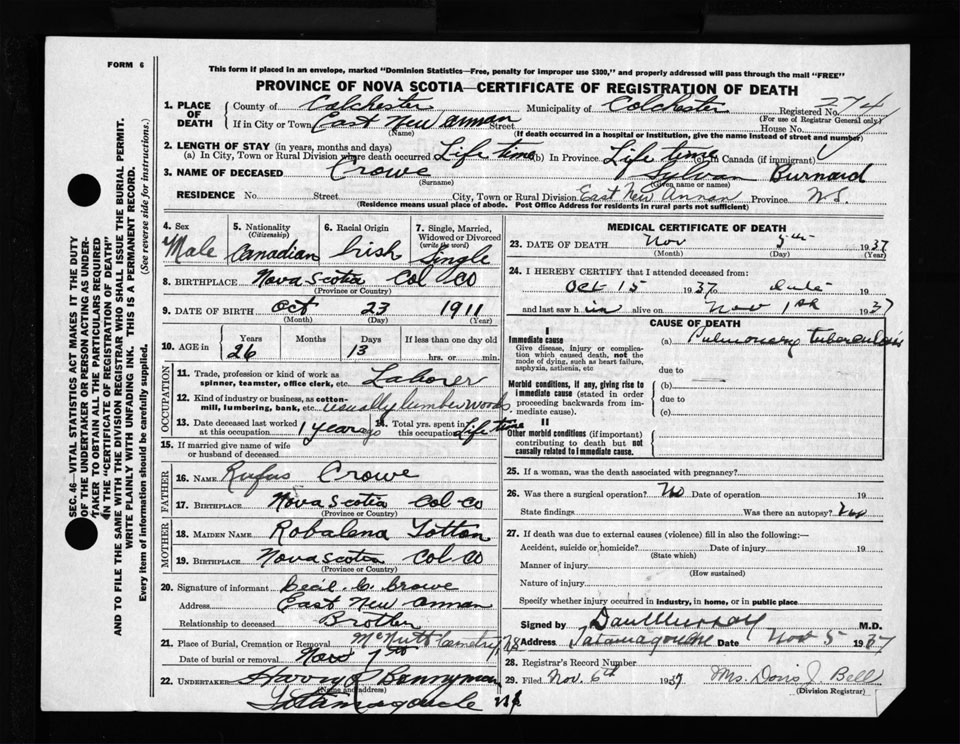 FORM 6
This form if placed in an envelope, marked "Dominion Statistics—Free, penalty for improper use $300," and properly addressed will pass through the mail "FREE"
PROVINCE OF NOVA SCOTIA—CERTIFICATE OF REGISTRATION OF DEATH
SEC. 46—VITAL STATISTICS ACT MAKES IT THE DUTY
OF THE UNDERTAKER OR PERSON ACTING AS UNDER-
TAKER TO OBTAIN ALL THE PARTICULARS REQUIRED
IN THE "CERTIFICATE OF REGISTRATION OF DEATH"
AND TO FILE THE SAME WITH THE DIVISION REGISTRAR WHO SHALL ISSUE THE BURIAL PERMIT.
WRITE PLAINLY WITH UNFADING INK. THIS IS A PERMANENT RECORD.
Every item of information should be carefully supplied. (See reverse side for instructions.)
1. PLACE OF DEATH County of Colchester Municipality of Colchester Registered No. 274
(For use of Registrar General only)
If in City or Town East New Annan Street House No.
(Name) (If death occurred in a hospital or institution, give the name instead of street and number)
2. LENGTH OF STAY (in years, months and days)
(a) In City, Town or Rural Division where death occurred Life time (b) In Province Life time (c) In Canada (if immigrant)
3. NAME OF DECEASED Crowe Sylvan Burnard
(Surname) (Given name or names)
RESIDENCE No. Street City, Town or Rural Division East New Annan Province N.S.
(Residence means usual place of abode. Post Office Address for residents in rural parts not sufficient)
4. Sex Male
5. Nationality (Citizenship) Canadian
6. Racial Origin Irish
7. Single, Married, Widowed or Divorced (write the word) Single
8. BIRTHPLACE Nova Scotia Col Co
(Province or Country)
9. DATE OF BIRTH Oct 23 1911
(Month) (Day) (Year)
10. AGE in Years 26 Months Days 13 If less than one day hrs. or min.
OCCUPATION
11. Trade, profession or kind of work as spinner, teamster, office clerk, etc. Laborer
12. Kind of industry or business, as cotton-mill, lumbering, bank, etc. usually lumber woods
13. Date deceased last worked at this occupation 1 year ago
14. Total yrs. spent in this occupation Life time
15. If married give name of wife or husband of deceased
FATHER
16. NAME Rufus Crowe
17. BIRTHPLACE Nova Scotia Col-Co
(Province or Country)
MOTHER
18. MAIDEN NAME Robalena Totton
19. BIRTHPLACE Nova Scotia Col Co
(Province or Country)
20. Signature of informant Cecil. C. Crowe
Address East New Annan
Relationship to deceased Brother
21. Place of Burial, Cremation or Removal McNutt Cemetry, N.S
Date of burial or removal Nov 7th
22. UNDERTAKER Harry Bonnyman
(Name and address)
Tatamagouche N.S
MEDICAL CERTIFICATE OF DEATH
23. DATE OF DEATH Nov 5th 1937
(Month) (Day) (Year)
24. I HEREBY CERTIFY that I attended deceased from:
Oct 15 1937 to date 19
and last saw him alive on Nov 1st 1937
CAUSE OF DEATH
I
Immediate cause
Give disease, injury or complication which caused death, not the mode of dying, such as heart failure, asphyxia, asthenia, etc
(a) Pulmonary tuberculosis
due to
Morbid conditions, if any, giving rise to immediate cause (stated in order proceeding backwards from immediate cause).
(b)
due to
(c)
II
Other morbid conditions (if important) contributing to death but not causally related to immediate cause.
25. If a woman, was the death associated with pregnancy?
26. Was there a surgical operation? No Date of operation 19
State findings Was there an autopsy? No
27. If death was due to external causes (violence) fill in also the following:—
Accident, suicide or homicide? Date of injury 19
(State which)
Manner of injury
(How sustained)
Nature of injury
Specify whether injury occurred in industry, in home, or in public place
Signed by Dan Murray M.D.
Address Tatamagouche Date Nov 5 1937
28. Registrar's Record Number
29. Filed Nov. 6th 1937 Mrs. Doris J. Bell
(Division Registrar)